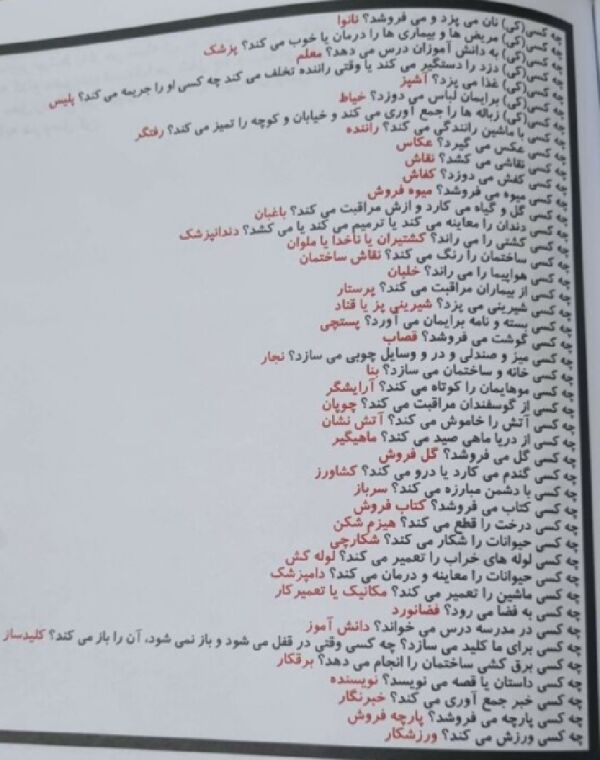 چه کسی(کی) نان می پزد و می فروشد؟ نانوا
چه کسی(کی) مریض ها و بیماری ها را درمان یا خوب می کند؟ پزشک
چه کسی(کی) به دانش آموزان درس می دهد؟ معلم
چه کسی(کی) دزد را دستگیر می کند یا وقتی راننده تخلف می کند چه کسی او را جریمه می کند؟ پلیس
چه کسی(کی) غذا می پزد؟ آشپز
چه کسی(کی) برایمان لباس می دوزد؟ خیاط
چه کسی(کی) زباله ها را جمع آوری می کند و خیابان و کوچه را تمیز می کند؟ رفتگر
چه کسی با ماشین رانندگی می کند؟ راننده
چه کسی عکس می گیرد؟ عکاس
چه کسی نقاشی می کشد؟ نقاش
چه کسی کفش می دوزد؟ کفاش
چه کسی میوه می فروشد؟ میوه فروش
چه کسی گل و گیاه می کارد و ازش مراقبت می کند؟ باغبان
چه کسی دندان را معاینه می کند یا ترمیم می کند یا می کشد؟ دندانپزشک
چه کسی کشتی را می راند؟ کشتیران یا ناخدا یا ملوان
چه کسی ساختمان را رنگ می کند؟ نقاش ساختمان
چه کسی هواپیما را می راند؟ خلبان
چه کسی از بیماران مراقبت می کند؟ پرستار
چه کسی شیرینی می پزد؟ شیرینی پز یا قناد
چه کسی بسته و نامه برایمان می آورد؟ پستچی
چه کسی گوشت می فروشد؟ قصاب
چه کسی میز و صندلی و در و وسایل چوبی می سازد؟ نجار
چه کسی خانه و ساختمان می سازد؟ بنا
چه کسی موهایمان را کوتاه می کند؟ آرایشگر
چه کسی از گوسفندان مراقبت می کند؟ چوپان
چه کسی آتش را خاموش می کند؟ آتش نشان
چه کسی از دریا ماهی صید می کند؟ ماهیگیر
چه کسی گل می فروشد؟ گل فروش
چه کسی گندم می کارد یا درو می کند؟ کشاورز
چه کسی با دشمن مبارزه می کند؟ سرباز
چه کسی کتاب می فروشد؟ کتاب فروش
چه کسی درخت را قطع می کند؟ هیزم شکن
چه کسی حیوانات را شکار می کند؟ شکارچی
چه کسی لوله های خراب را تعمیر می کند؟ لوله کش
چه کسی حیوانات را معاینه و درمان می کند؟ دامپزشک
چه کسی ماشین را تعمیر می کند؟ مکانیک یا تعمیرکار
چه کسی به فضا می رود؟ فضانورد
چه کسی در مدرسه درس می خواند؟ دانش آموز
چه کسی برای ما کلید می سازد؟ چه کسی وقتی در قفل می شود و باز نمی شود، آن را باز می کند؟ کلیدساز
چه کسی برق کشی ساختمان را انجام می دهد؟ برقکار
چه کسی داستان یا قصه می نویسد؟ نویسنده
چه کسی خبر جمع آوری می کند؟ خبرنگار
چه کسی پارچه می فروشد؟ پارچه فروش
چه کسی ورزش می کند؟ ورزشکار